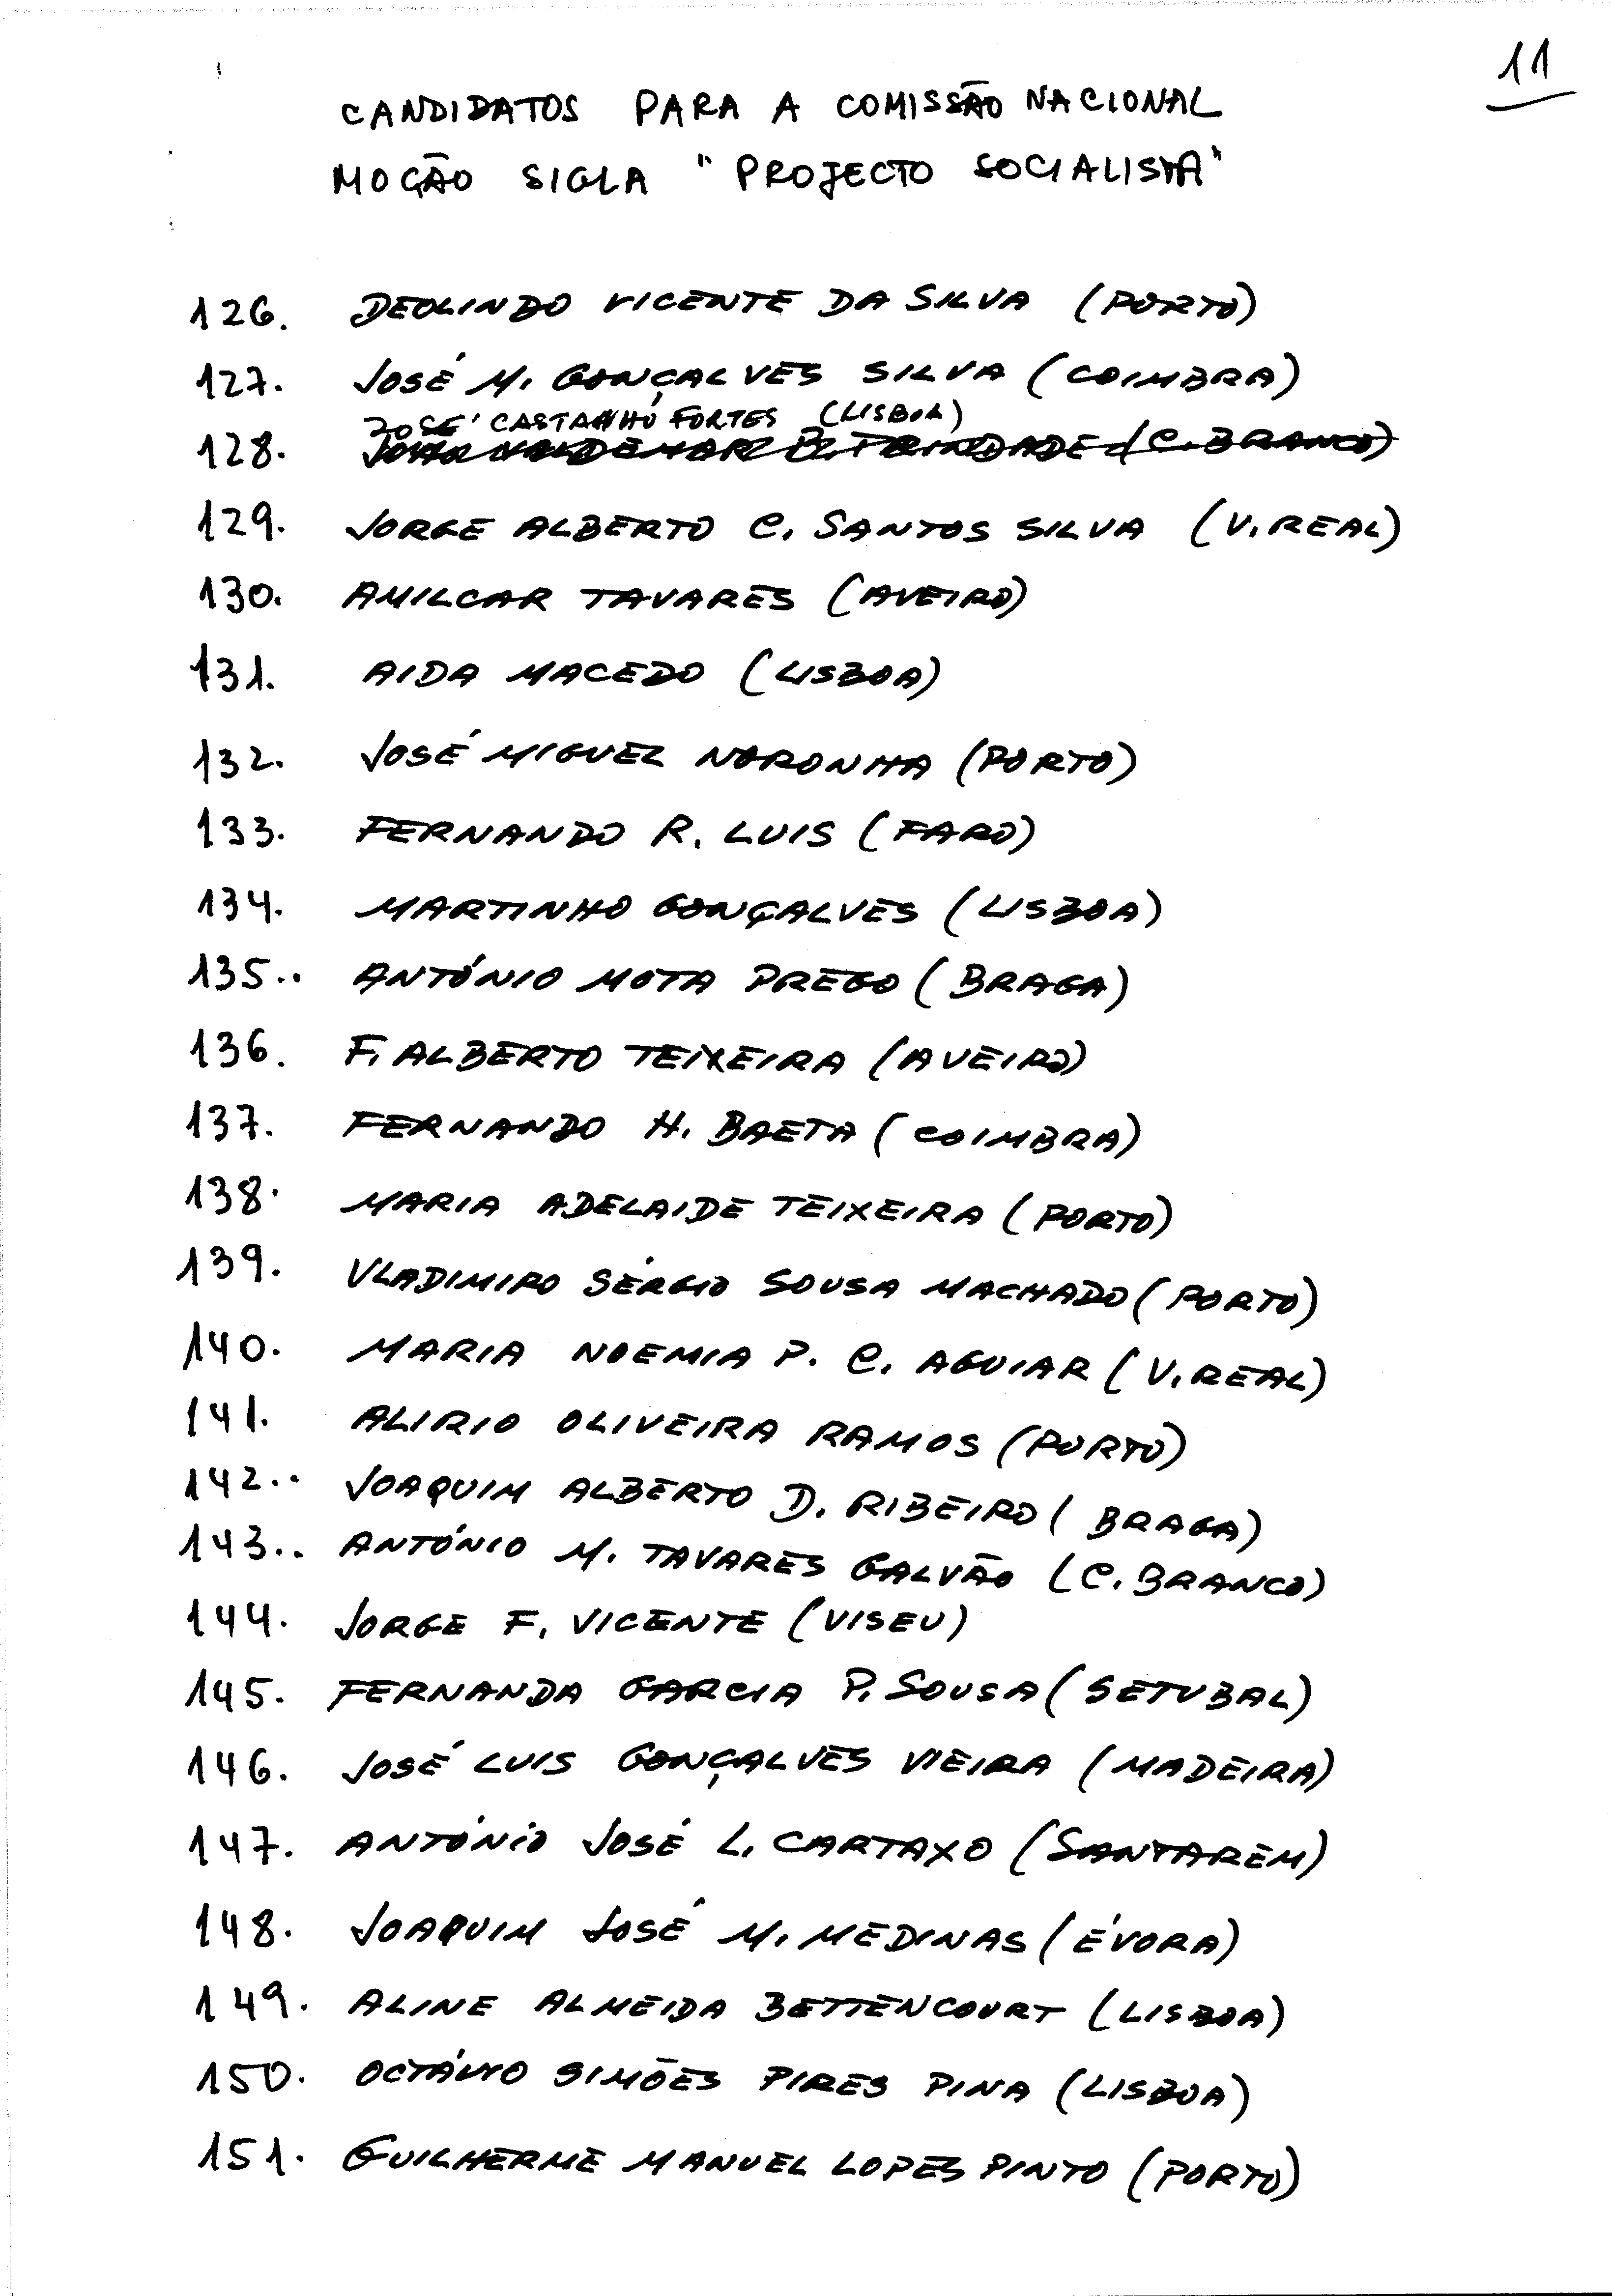 11
CANDIDATOS PARA A COMISSÃO NACIONAL
MOÇÃO SIGLA "PROJECTO SOCIALISTA"
126. DEOLINDO VICENTE DA SILVA (PORTO)
127. JOSÉ M. GONÇALVES SILVA (COIMBRA)
JOSÉ CASTANHO FORTES (LISBOA)
128. TRINDADE (C. BRANCO)
129. JORGE ALBERTO C. SANTOS SILVA (V. REAL)
130. AMILCAR TAVARES (AVEIRO)
131. AIDA MACEDO (LISBOA)
132. JOSÉ MIGUEL NORONHA (PORTO)
133. FERNANDO R. LUIS (FARO)
134. MARTINHO GONÇALVES (LISBOA)
135.. ANTÓNIO MOTA PREGO (BRAGA)
136. F. ALBERTO TEIXEIRA (AVEIRO)
137. FERNANDO H. BAETA (COIMBRA)
138. MARIA ADELAIDE TEIXEIRA (PORTO)
139. VLADIMIRO SÉRGIO SOUSA MACHADO (PORTO)
140. MARIA NOEMIA P. C. AGUIAR (V. REAL)
141. ALIRIO OLIVEIRA RAMOS (PORTO)
142.. JOAQUIM ALBERTO D. RIBEIRO (BRAGA)
143.. ANTÓNIO M. TAVARES GALVÃO (C. BRANCO)
144. JORGE F. VICENTE (VISEU)
145. FERNANDA GARCIA P. SOUSA (SETUBAL)
146. JOSÉ LUIS GONÇALVES VIEIRA (MADEIRA)
147. ANTÓNIO JOSÉ L. CARTAXO (SANTAREM)
148. JOAQUIM JOSÉ M. MEDINAS (ÉVORA)
149. ALINE ALMEIDA BETTENCOURT (LISBOA)
150. OCTÁVIO SIMÕES PIRES PINA (LISBOA)
151. GUILHERME MANUEL LOPES PINTO (PORTO)